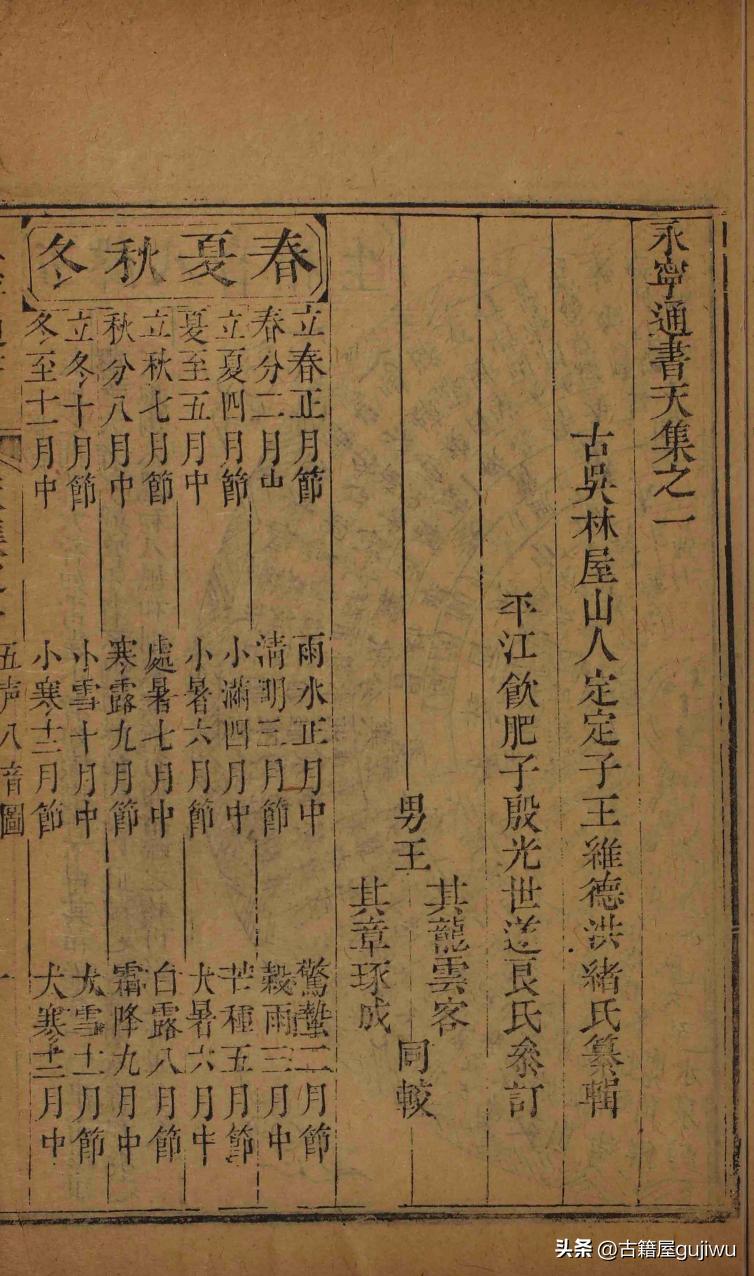 永寧通書天集之一
古吳林屋山人定定子王維德洪緒氏纂輯
平江飲肥子殷光世良氏叅訂
男王
其龍雲客
其章琢成
同較
春夏秋冬
立春正月節 雨水正月中 驚蟄二月節
春分二月中 清明三月節 穀雨三月中
立夏四月節 小滿四月中 芒種五月節
夏至五月中 小暑六月節 大暑六月中
立秋七月節 處暑七月中 白露八月節
秋分八月中 寒露九月節 霜降九月中
立冬十月節 小雪十月中 大雪十一月節
冬至十一月中 小寒十二月節 大寒十二月中
五声八音圖
一
头条 @古籍屋gujiwu